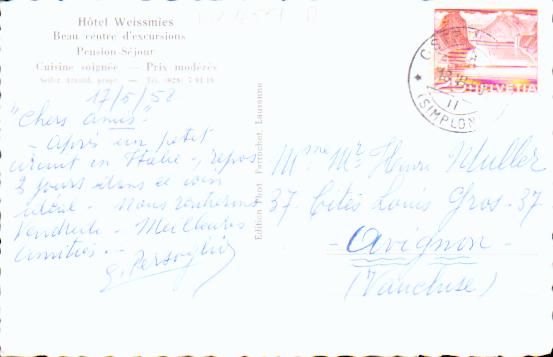 Hôtel Weissmies
Beau centre d'excursions
Pension-Séjour
Cuisine soignée — Prix modérés
Seiler Arnold, propr. — Tél. (028) 7 91 16
17/5/58
"Chers amis"
- Après un petit
circuit en Italie -, repos
2 jours dans ce coin
idéal - Nous rentrerons
Vendredi - Meilleures
amitiés. -
Edition Phot. Perrochet, Lausanne
(SIMPLON)
HELVETIA
Mme Mr Henri Muller
37 - Cités Louis Gros - 37
- Avignon -
(Vaucluse)